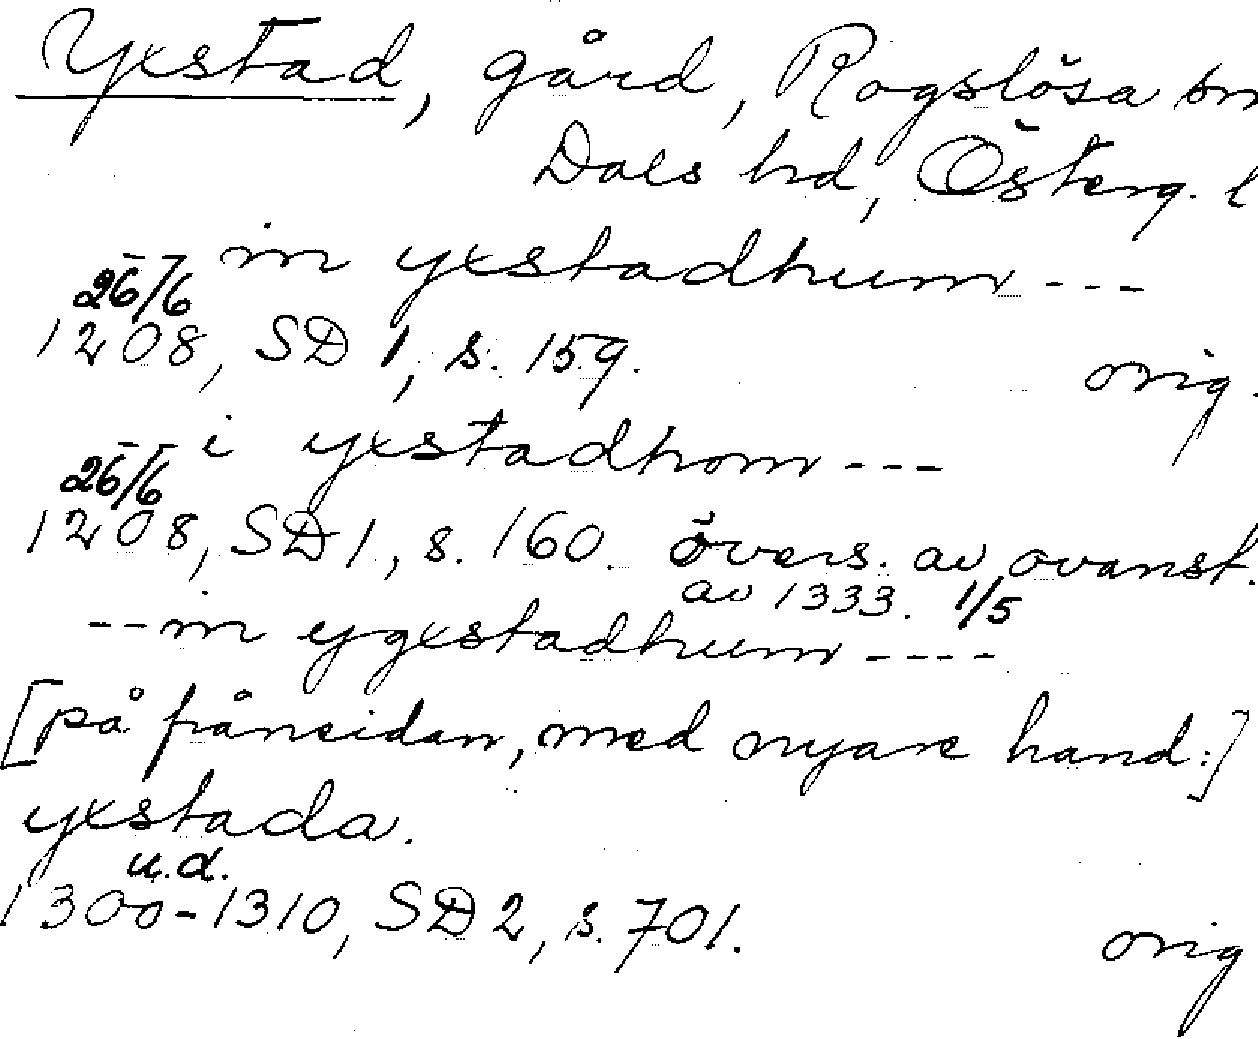 Yxstad, gård, Rogslösa sn
Dals hd, Österg. l
in yxstadhum ---
26/6
1208, SD 1, s. 159. orig.
i yxstadhom ---
26/6
1208, SD 1, s. 160. övers. av ovanst.
av 1333. 1/5
--in ygxstadhum ----
[på frånsidan, med nyare hand:]
yxstada.
u.d.
1300-1310, SD 2, s. 701. orig